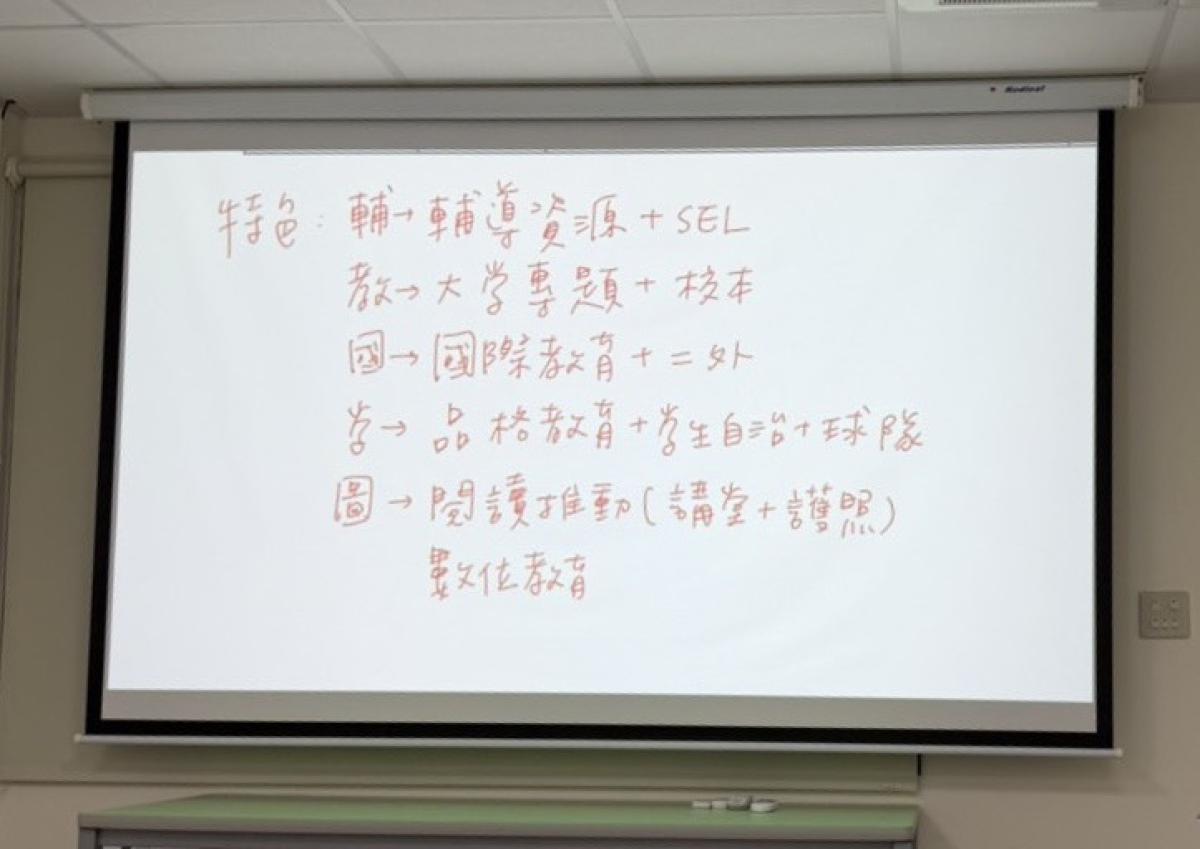 特色：輔→輔導資源+SEL
教→大学專題+校本
國→國際教育+二外
学→品格教育+学生自治+球隊
圖→閱讀推動(講堂+護照)
數位教育